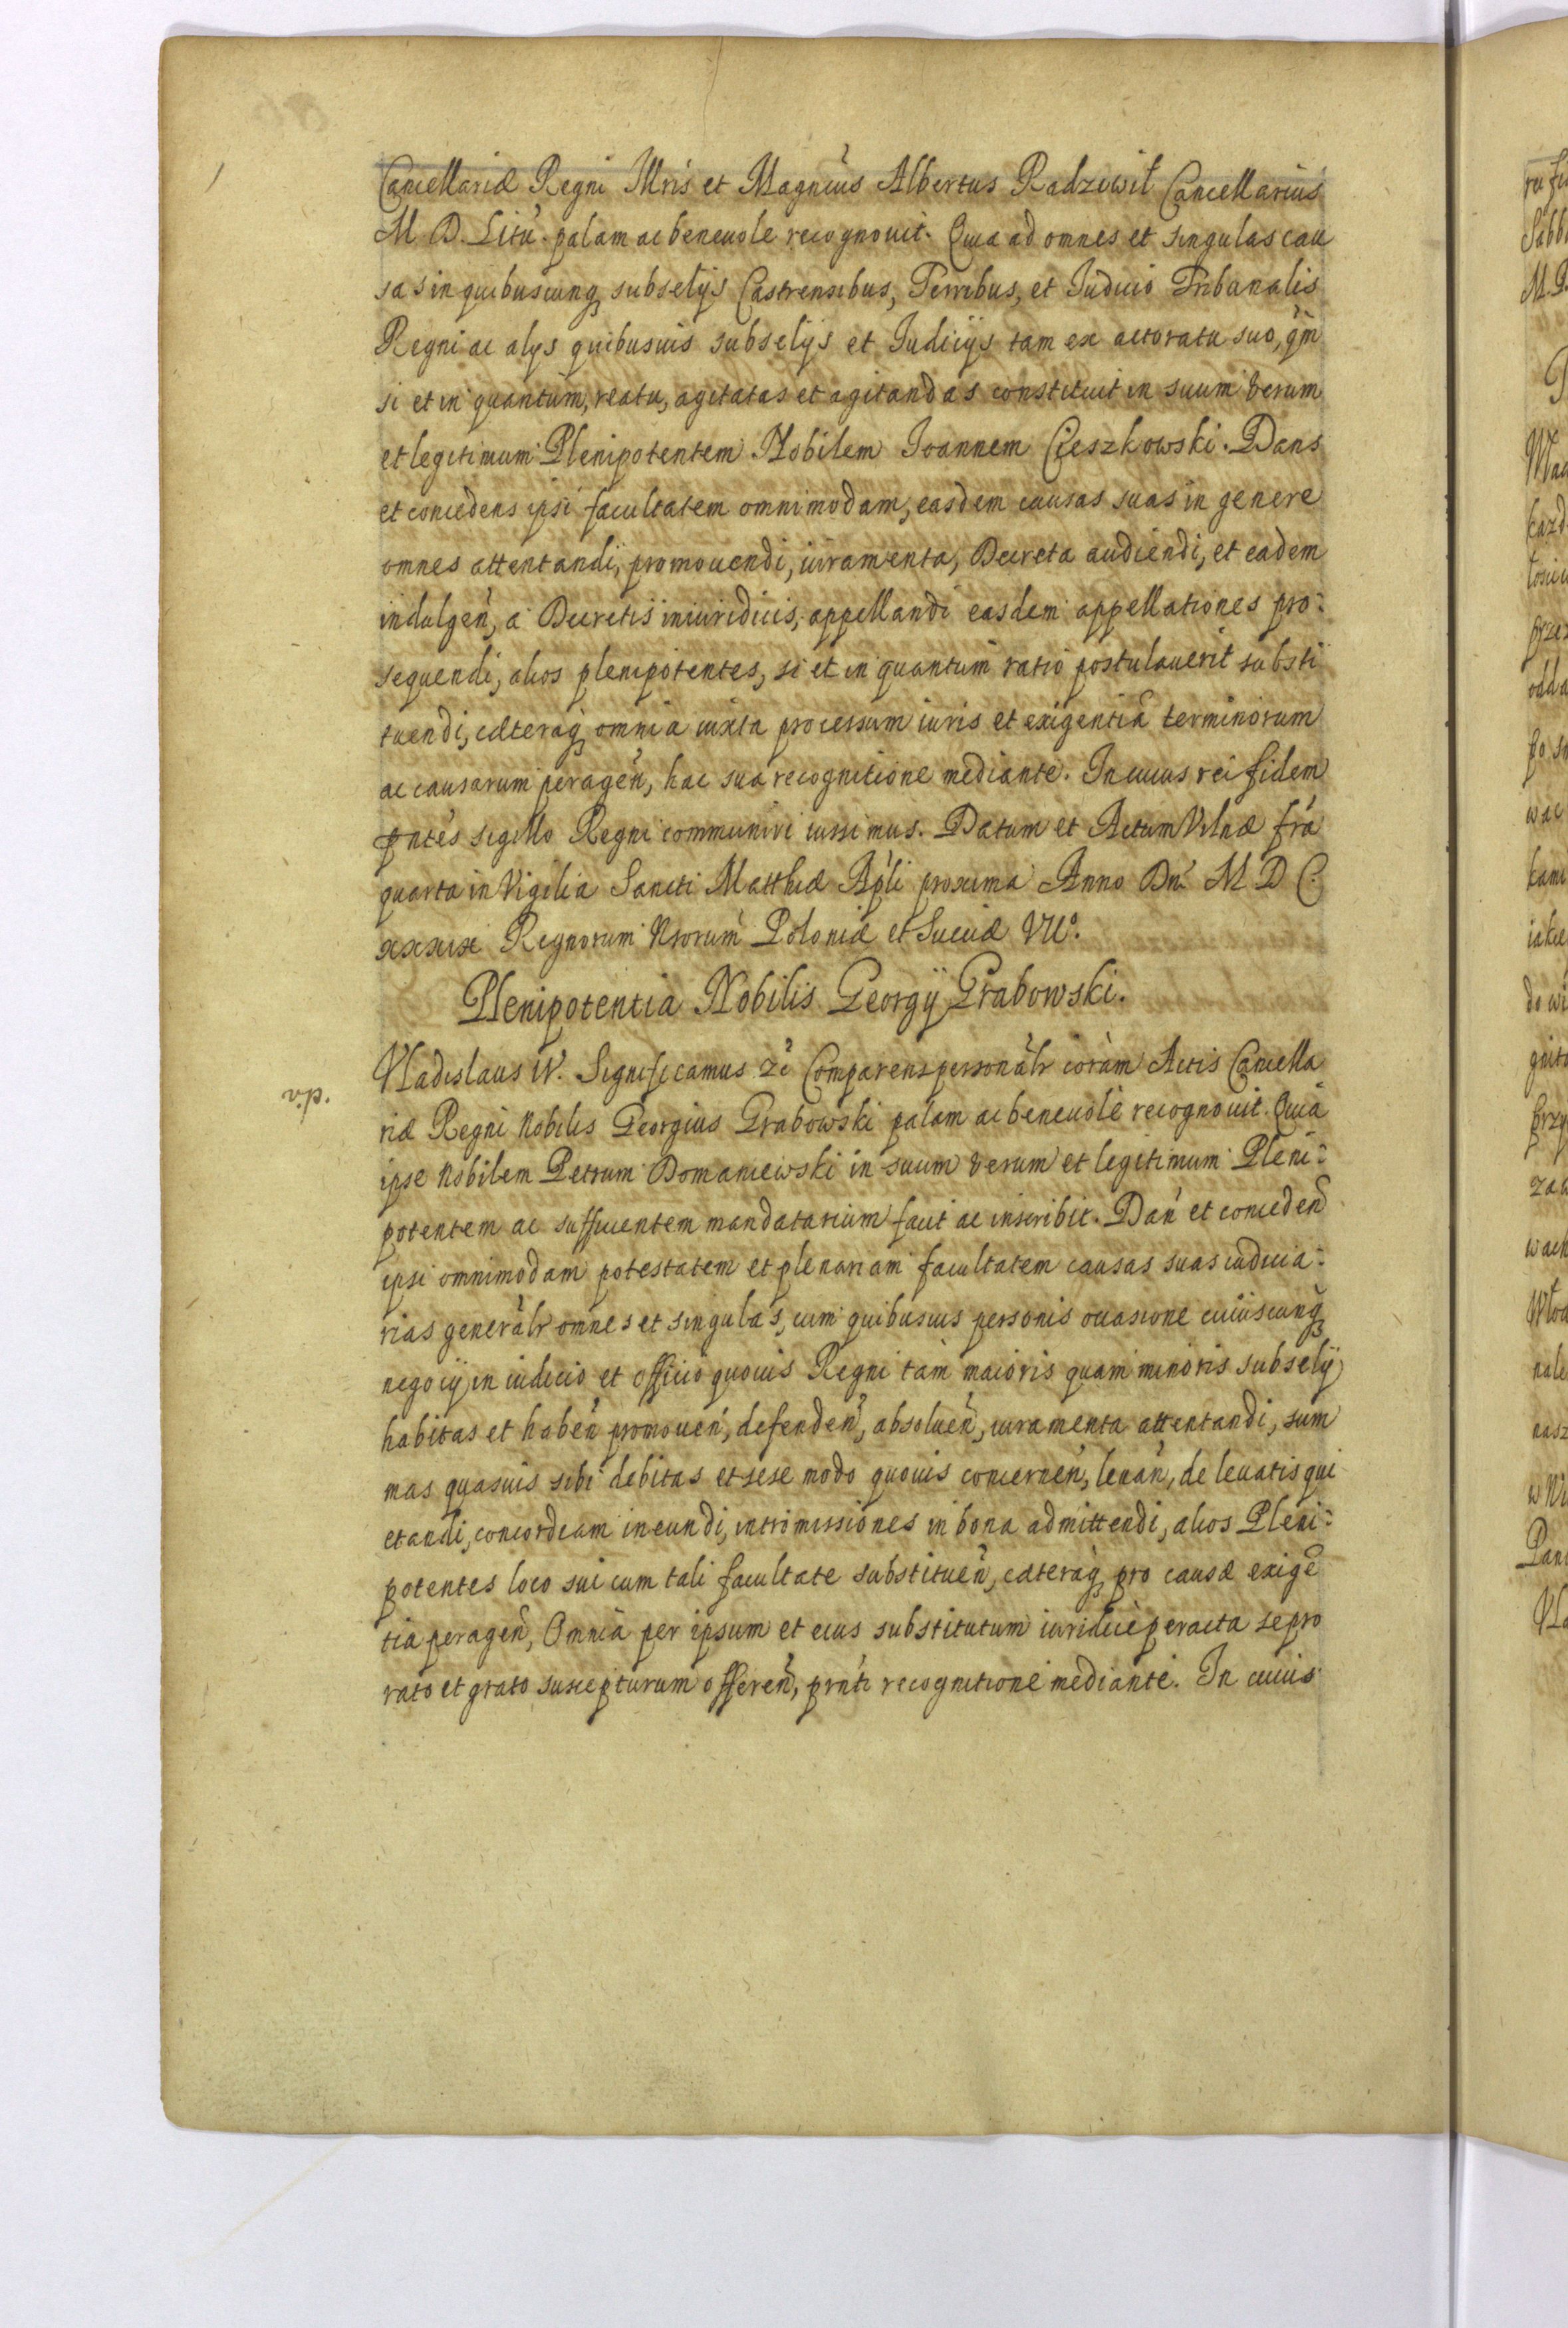 Cancellariæ Regni Illris et Magncus Albertus Radziwił Cancellarius
M. D. Litu. palam ac beneuole recognouit. Quia ad omnes et singulas cau
sas in quibuscunq subselijs Castrensibus, Terribus, et Iudicio Tribunalis
Regni ac alys quibusuis subselijs et Iudicijs tam ex actoratu suo, qm
si et in quantum, reatu, agitatas et agitandas constituit in suum verum
et legitimum Plenipotentem Nobilem Ioannem Cieszkowski. Dans
et concedens ipsi facultatem omnimodam, easdem causas suas in genere
omnes attentandi, promouendi, iuramenta, Decreta audiendi, et eadem
indulgen, a Decretis iniuridicis, appellandi easdem appellationes pro:
sequendi, alios plenipotentes, si et in quantum ratio postulauerit substi
tuendi, cæteraq omnia iuxta processum iuris et exigentiã terminorum
ac causarum peragen, hac sua recognitione mediante. In cuius rei fidem
pntes sigillo Regni communiri iussimus. Datum et Actum Vilnæ fra
quarta in Vigilia Sancti Matthiæ Apli proxima Anno Dni M D C.
xxxix Regnorum Nrorum Poloniæ et Sueciæ VIIo.
Plenipotentia Nobilis Georgij Grabowski.
Vladislaus IV. Significamus zc Comparens personalr coram Actis Cancella
riæ Regni Nobilis Georgius Grabowski palam ac beneuole recognouit. Quia
ipse Nobilem Petrum Domaniewski in suum verum et legitimum Pleni:
potentem ac sufficientem mandatarium facit ac inscribit. Dan et conceden
ipsi omnimodam potestatem et plenariam facultatem causas suas iudicia:
rias generalr omnes et singulas, cum quibusuis personis occasione cuiuscunq
negocij in iudicio et officio quouis Regni tam maioris quam minoris subselij
habitas et haben promouen, defenden, absoluen, iuramenta attentandi, sum
mas quasuis sibi debitas et sese modo quouis concernen, leuan, de leuatis qui
etandi, concordiam ineundi, intromissiones in bona admittendi, alios Pleni:
potentes loco sui cum tali facultate substituen, cæteraq pro causæ exigẽ
tia peragen, Omnia per ipsum et eius substitutum iuridice peracta se pro
rato et grato suscepturum offeren, prnti recognitione mediante. In cuius